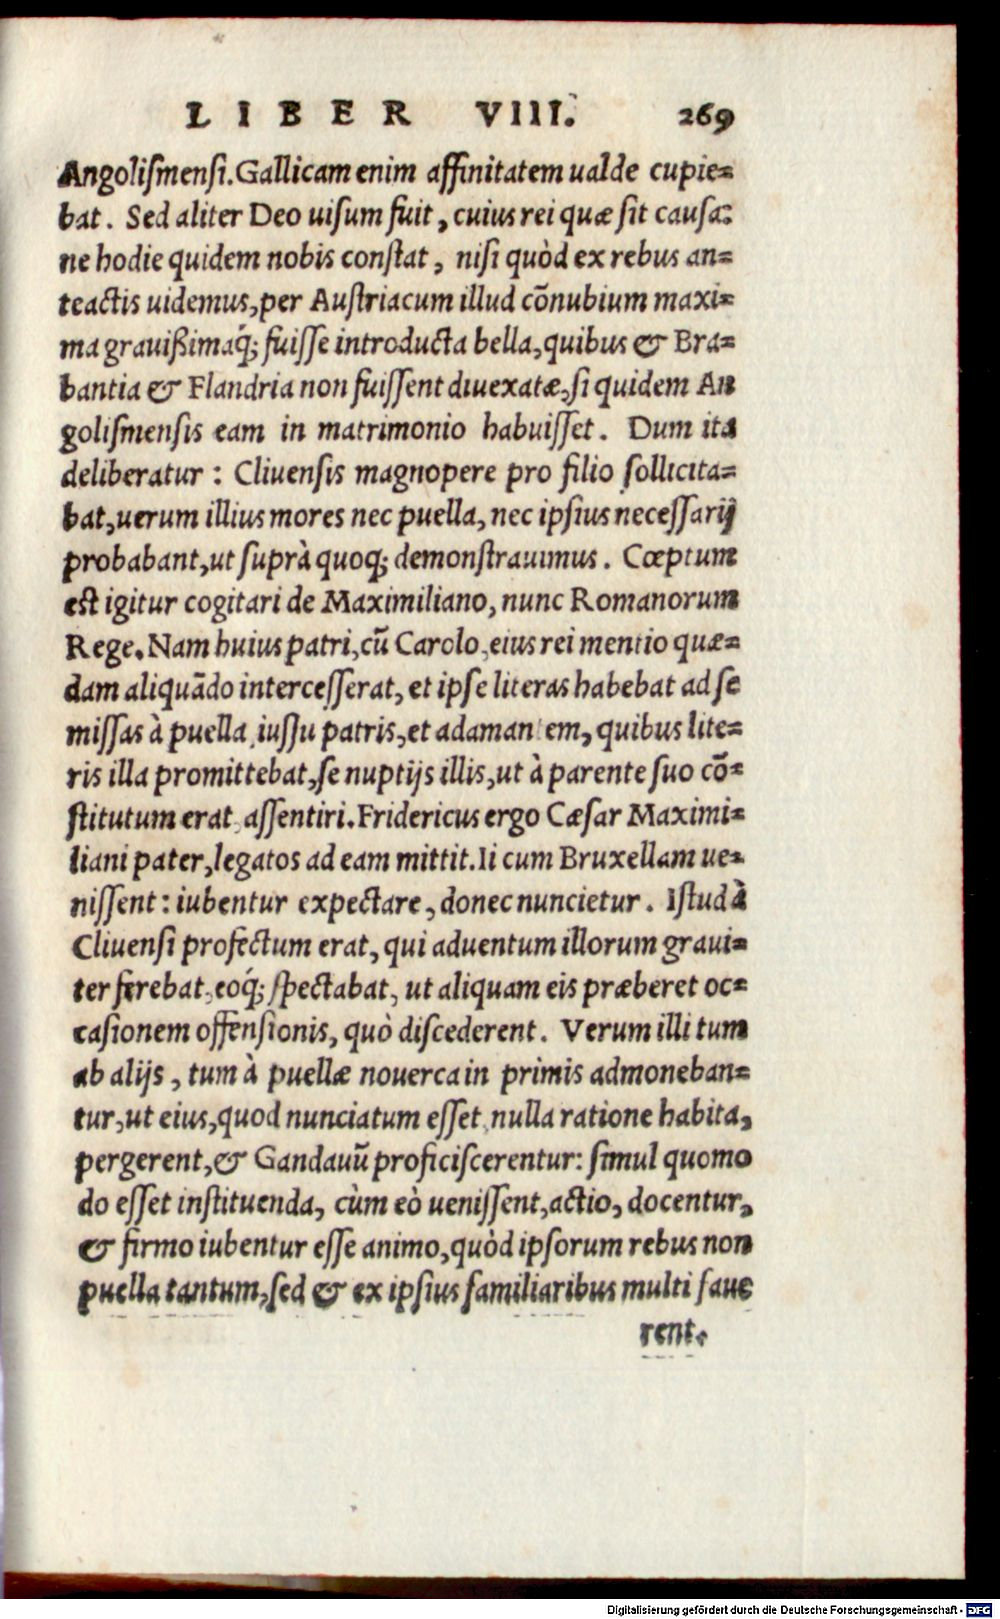 LIBER VIII. 269
Angolismensi. Gallicam enim affinitatem ualde cupie=
bat. Sed aliter Deo uisum fuit, cuius rei quæ sit causa:
ne hodie quidem nobis constat, nisi quòd ex rebus an=
teactis uidemus, per Austriacum illud cōnubium maxi=
ma grauißimaq́; fuisse introducta bella, quibus & Bra=
bantia & Flandria non fuissent diuexatæ, si quidem An
golismensis eam in matrimonio habuisset. Dum ita
deliberatur: Cliuensis magnopere pro filio sollicita=
bat, uerum illius mores nec puella, nec ipsius necessarij
probabant, ut suprà quoq; demonstrauimus. Cœptum
est igitur cogitari de Maximiliano, nunc Romanorum
Rege. Nam huius patri, cū Carolo, eius rei mentio quæ=
dam aliquādo intercesserat, et ipse literas habebat ad se
missas à puella, iussu patris, et adamantem, quibus lite=
ris illa promittebat, se nuptijs illis, ut à parente suo cō=
stitutum erat, assentiri. Fridericus ergo Cæsar Maximi=
liani pater, legatos ad eam mittit. Ii cum Bruxellam ue=
nissent: iubentur expectare, donec nuncietur. Istud à
Cliuensi profectum erat, qui aduentum illorum graui=
ter ferebat, eoq́; spectabat, ut aliquam eis præberet oc=
casionem offensionis, quò discederent. Verum illi tum
ab alijs, tum à puellæ nouerca in primis admoneban=
tur, ut eius, quod nunciatum esset, nulla ratione habita,
pergerent, & Gandauū proficiscerentur: simul quomo
do esset instituenda, cùm eò uenissent, actio, docentur,
& firmo iubentur esse animo, quòd ipsorum rebus non
puella tantum, sed & ex ipsius familiaribus multi faue
rent.
Digitalisierung gefördert durch die Deutsche Forschungsgemeinschaft - DFG